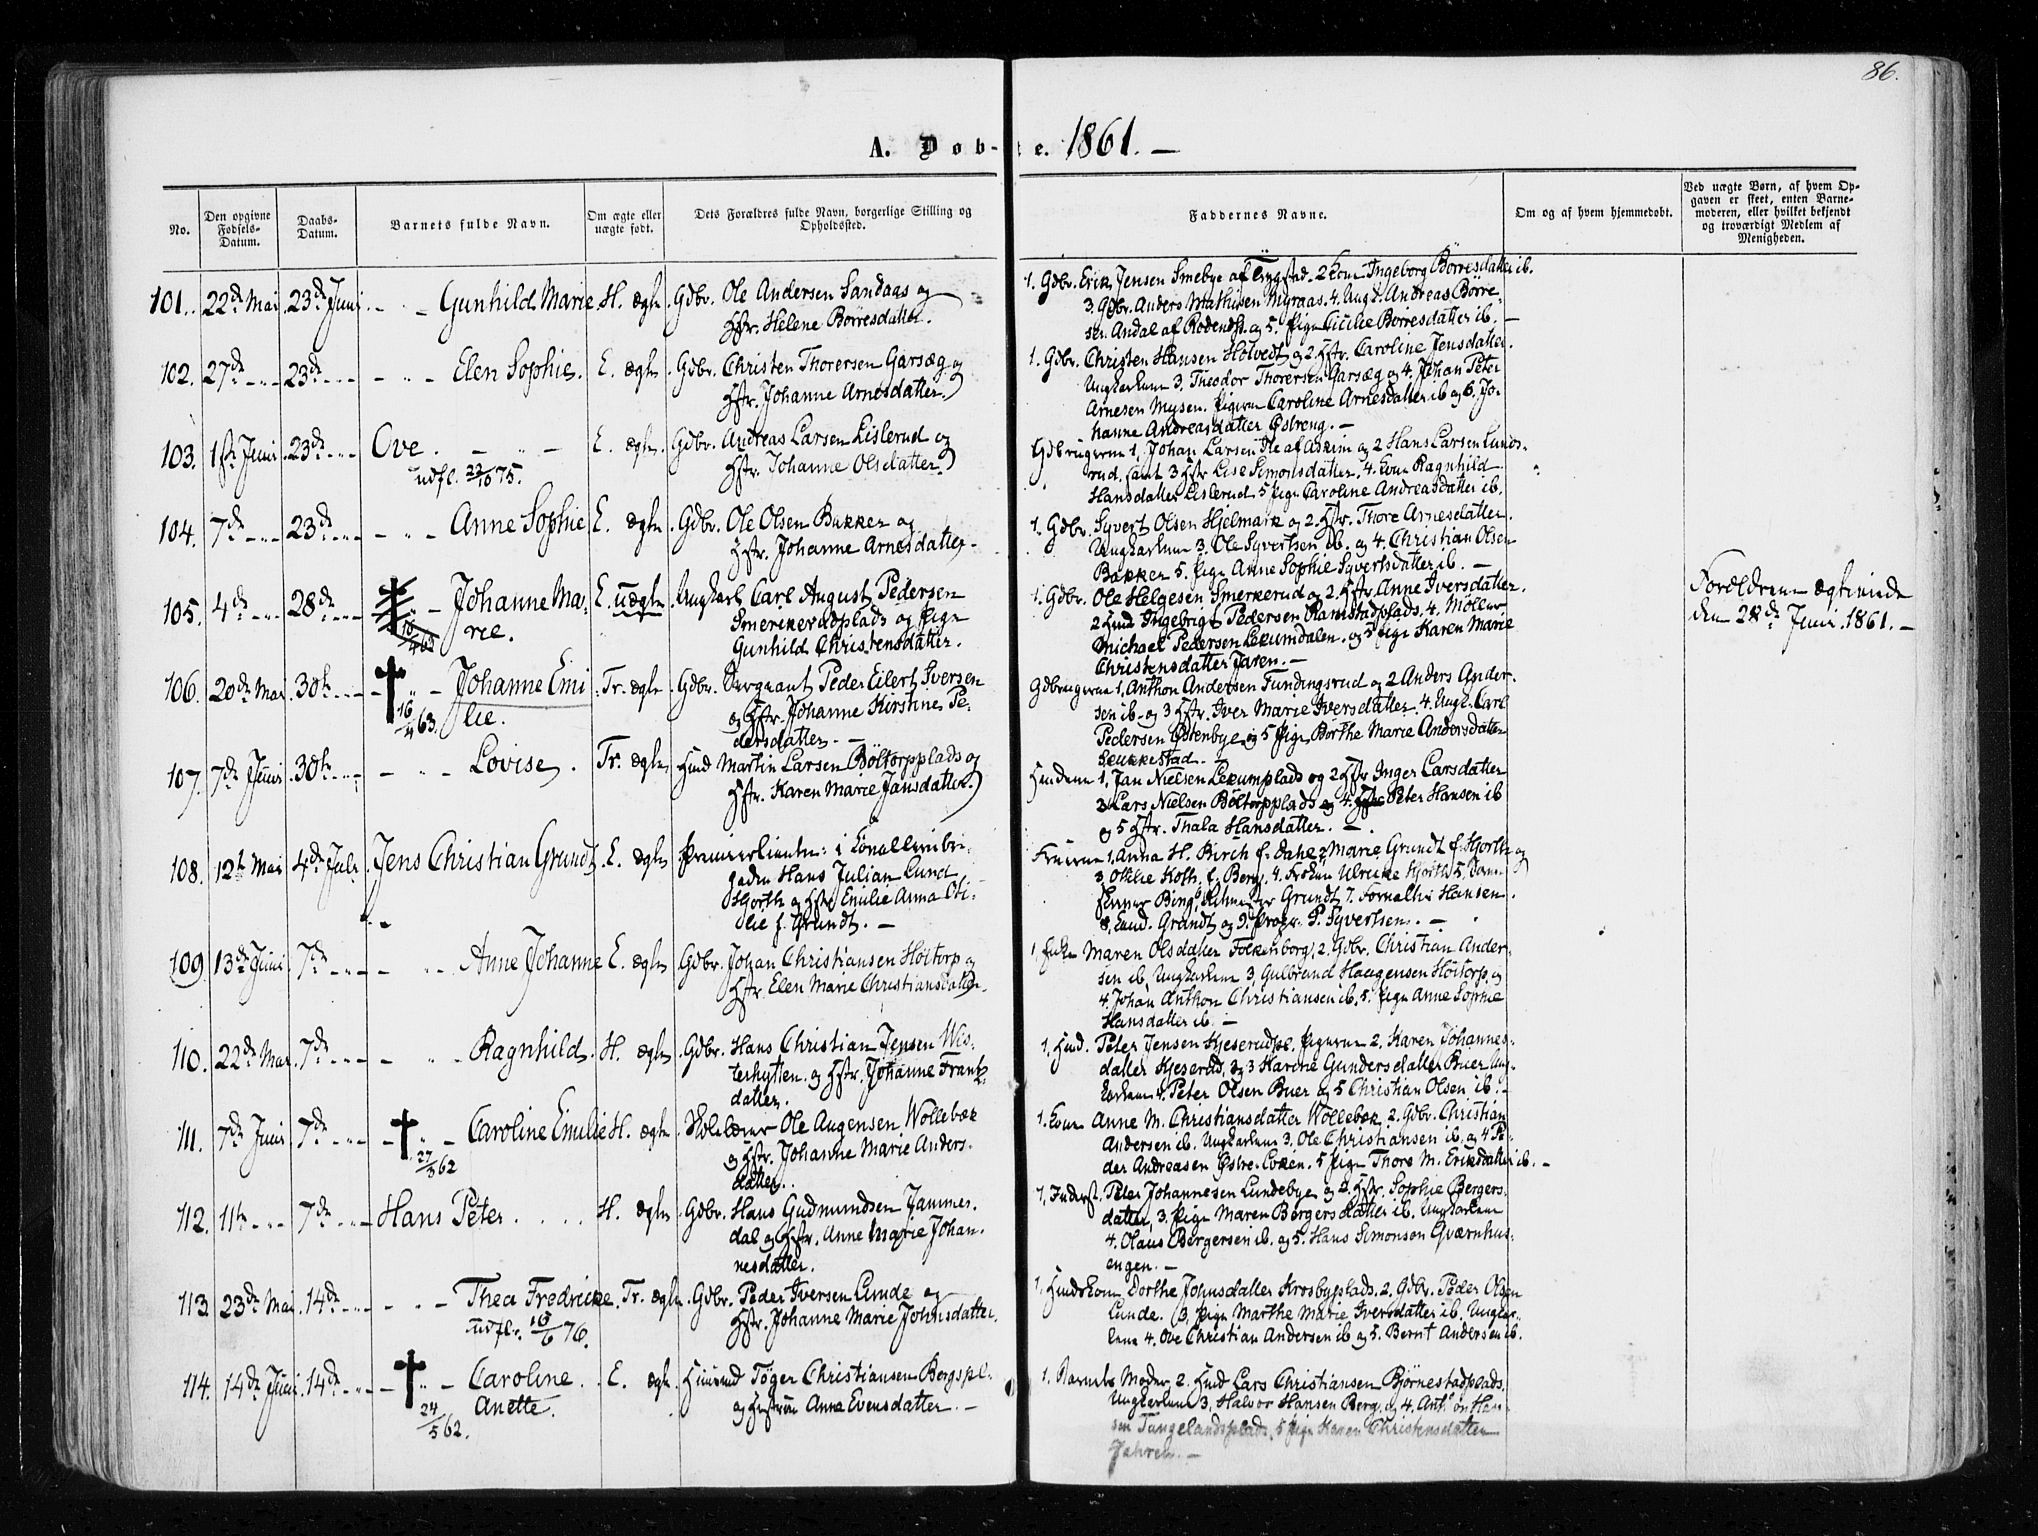 86.
A. Døb- te. 1861. —
No.
Den opgivne Fødsels-Datum.
Daabs-Datum.
Barnets fulde Navn.
Om ægte eller uægte født.
Dets Forældres fulde Navn, borgerlige Stilling og Opholdssted.
Faddernes Navne.
Om og af hvem hjemmedøbt.
Ved uægte Børn, af hvem Opgaven er skeet, enten Barnemoderen, eller hvilket bekjendt og troværdigt Medlem af Menigheden.
101. 22de Mai 23de Juni Gunhild Marie H. ægte Gdbr. Ole Andersen Sandaas og
Hstr. Helene Børresdatter.
1. Gdbr. Erik Jensen Smebye af Trygstad. 2 Kone Ingeborg Børresdatter ib.
3. Gdbr. Anders Mathisen Myraas. 4. Ungk. Andreas Børre-
sen Andal af Rødends. og 5. Pige Cicilie Børresdatter ib. —
102. 27de 23de Elen Sophie. E. ægte Gdbr. Christen Thorersen Garsæg og
Hstr. Johanne Arnesdatter.
1. Gdbr. Christen Hansen Holvedt og 2. Hstr. Caroline Jensdatter.
Ungkarlene 3. Theodor Thorersen Garsæg og 4. Johan Peter
Arnesen Mysen. Pigerne Caroline Arnesdatter ib og 6. Jo-
hanne Andreasdatter Østreng. —
103. 1ste Juni 23de Ove. E. ægte Gdbr. Andreas Larsen Lislerud og
udfl. 23/10 75. Hstr. Johanne Olsdatter.
Gdbrugerne 1. Johan Larsen Ile af Askim og 2 Hans Larsen Lunds-
rud samt 3 Hstr Lise Simonsdatter. 4. Kone Ragnhild
Hansdatter Lislerud 5 Pige Caroline Andreasdatter ib.
104. 7de 23de Anne Sophie E. ægte Gdbr. Ole Olsen Bakker og
Hstr. Johanne Arnesdatter
1. Gdbr. Syvert Olsen Hjelmark og 2. Hstr. Thore Arnesdatter.
Ungkarlene 3. Ole Syvertsen ib. og 4. Christian Olsen
Bakker 5. Pige Anne Sophie Syvertsdatter ib. —
105. 4de 28de Johanne Ma-
rie. E. uægte Ungkarl Carl August Pedersen
Smerkerudplads og Pige
Gunhild Christensdatter.
1. Gdbr. Ole Helgesen Smerkerud og 2. Hstr. Anne Iversdatter
2 Hmd Ingebrigt Pedersen Ramstadplads. 4. Møller
Michael Pedersen Lekumdalen. og 5 Pige Karen Marie
Christensdatter Jaren. —
Forældrene ægteviede
den 28de Juni 1861. —
106. 20de Mai 30te Johanne Emi
lie. 16/4 63. Tr. ægte Gdbr. Sergeant Peder Eilert Iversen
og Hstr. Johanne Kirstine Pe-
dersdatter. —
Gdbrugerne 1. Anthon Andersen Fundingsrud og 2 Anders Ander-
sen ib. og 3 Hstr. Iver Marie Iversdatter. 4. Ungk. Carl
Pedersen Østenbye og 5 Pige Borthe Marie Andersdatter
107. 7de Juni 30te Lovise. Tr. ægte Hmd Martin Larsen Böltorpplads og
Hstr. Karen Marie Jansdatter.
Hmdene 1. Jan Nielsen Lekumplads og 2 Hstr Inger Larsdatter
3 Lars Nielsen Böltorpplads og 4. Peter Hansen ib
og 5 Hstr. Thala Hansdatter. —
108. 12te Mai 4de Juli Jens Christian Grundt E. ægte Premierlieutn: i
gaden Hans Julian Lund
Hjorth og Hstr Emilie Anna Oti-
lie f. Grundt. —
Fruerne 1. Anna H. Birch f. Dahl 2 Marie Grundt f. Hjorth og
3. Otilie Koth f. Berg. 4. Frøken Ulricke Hjorth 5. Dam-
Grundt 7. Hansen.
8. Grundt og 9. P. Syvertsen. —
109 13de Juni 7de Anne Johanne E. ægte Gdbr. Johan Christiansen Höltorp og
Hstr. Elen Marie Christiansdatter.
1. Enke Maren Olsdatter Folkenborg, 2. Gdbr. Christian Ander-
sen ib. Ungkarlene 3. Gulbrand Haagensen Höitorp og
4. Johan Anthon Christiansen ib. 5. Pige Anne Sophie
Hansdatter ib. —
110. 22de Mai 7de Ragnhild. H. ægte Gdbr. Hans Christian Jensen Wis-
terhytten. og Hstr. Johanne Frantz-
datter.
1. Hmd. Peter Jensen Kjeserudpl. Pigerne 2. Karen Johannes-
datter Kjeserud, og 3 Karine Gundersdatter Buer Ung-
karlene 4. Peter Olsen Buer og 5 Christian Olsen ib. —
111. 7de Juni 7de Caroline Emilie H. ægte Skolelærer Ole Augensen Wollebæk
27/3 62 og Hstr. Johanne Marie Anders-
datter.
1. Kone Anne M. Christiansdatter Wollebæk 2. Gdbr. Christian
Andersen ib. Ungkarlene 3. Ole Christiansen ib. og 4 Pe-
der Andreasen Østre-Løken. 5 Pige Thore M. Eriksdatter ib. —
112. 11te 7de Hans Peter. H. ægte Gdbr. Hans Gudmundsen Jammer-
dal og Hstr. Anne Marie Johan-
nesdatter.
1. Inderst. Peter Johannesen Lundebye og 2. Hstr. Sophie Bergers-
datter, 3. Pige Maren Bergersdatter ib. Ungkarlene
4. Olaus Bergersen ib. og 5. Hans Simonsøn Qværnhus-
engen. —
113 23de Mai 14de Thea Fredricke. Tr. ægte Gdbr. Peder Iversen Lunde og
udfl. 16/6 76. Hstr. Johanne Marie Johnsdatter.
1. Hmdskone Dorthe Johnsdatter Krosbyplads. 2. Gdbr. Peder Olsen
Lunde. 3. Pige Marthe Marie Iversdatter ib. Ungkar-
lene 4. Ove Christian Andersen ib og 5. Bernt Andersen ib.
114. 14de Juni 14de Caroline E. ægte Huusmd Töger Christiansen Bergspl.
Anette. 24/5 62. og Hustrue Anne Evensdatter. —
1. Barnets Moder, 2. Hmd Lars Christiansen Bjørnestadplads.
Ungkarlene 3. Halvor Hansen Berg og 4. Anton Han-
sen Tangelandsplads. 5 Pige Karen Christensdatter
Jahren. —